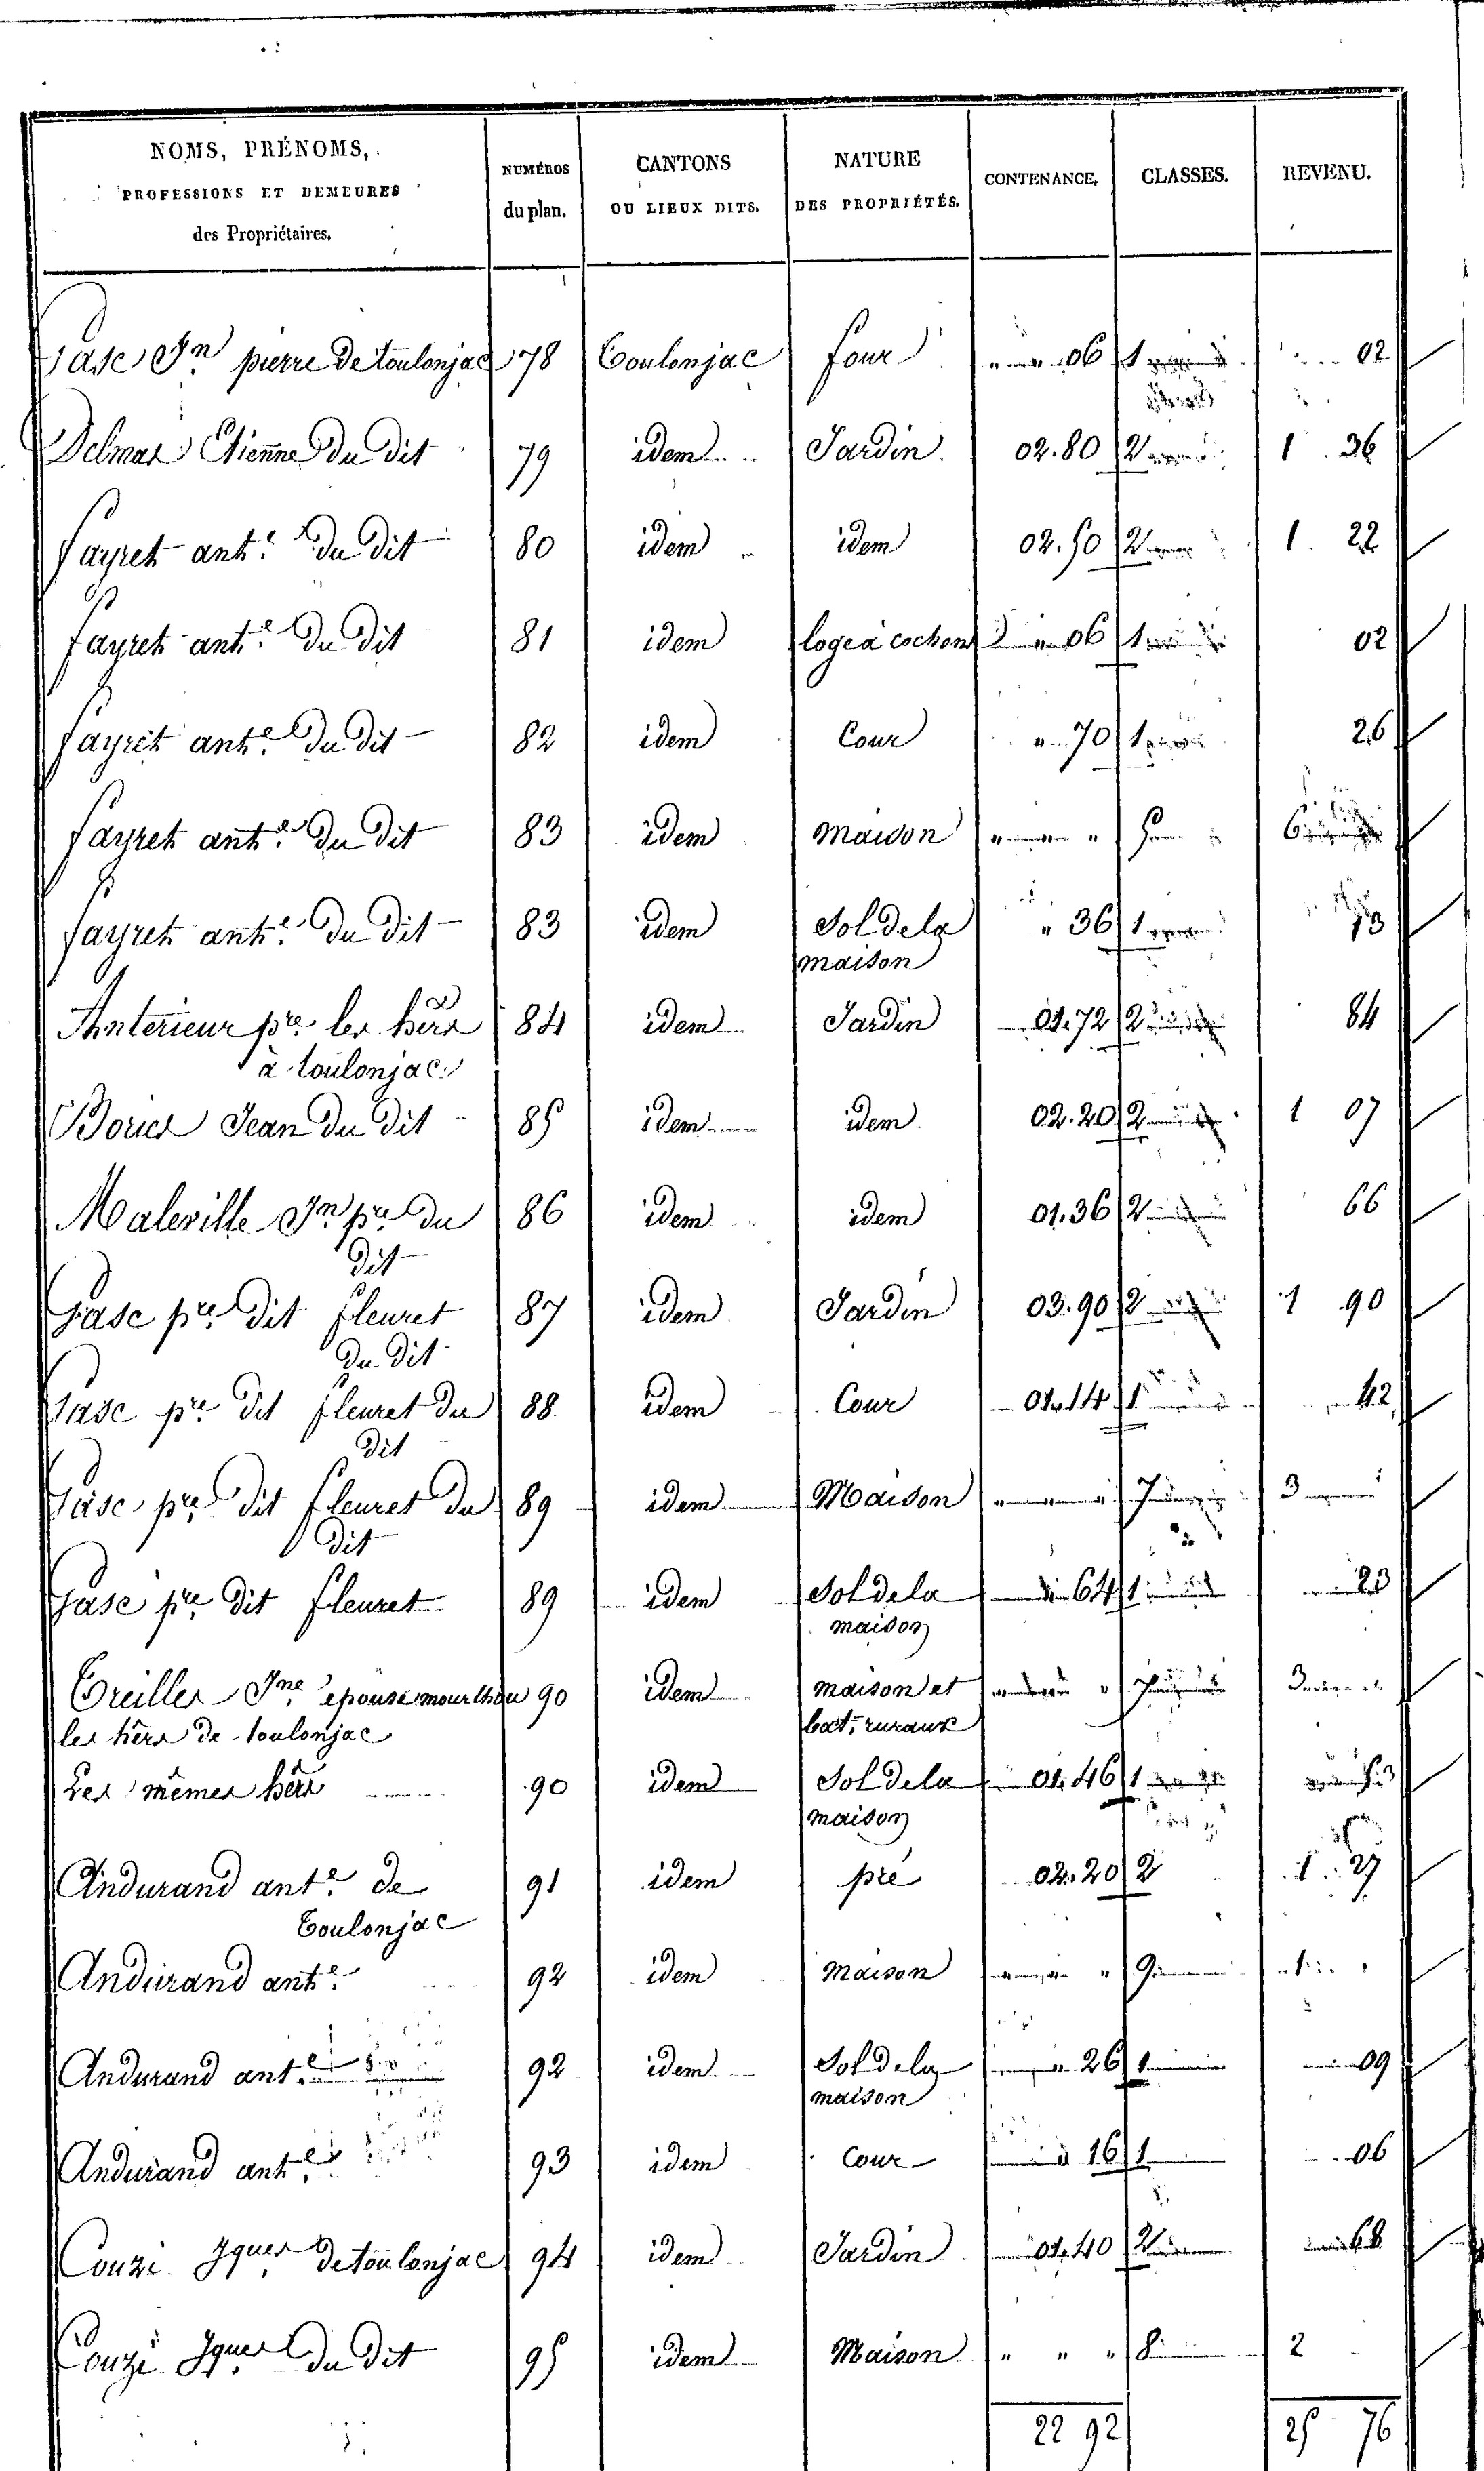 NOMS, PRÉNOMS, PROFESSIONS ET DEMEURES des Propriétaires. | NUMÉROS du plan. | CANTONS OU LIEUX DITS. | NATURE DES PROPRIÉTÉS. | CONTENANCE. | CLASSES. | REVENU.
Gasc Jn pierre de toulonjac 78 Toulonjac four " " 06 1 02
Delmas Etienne du dit 79 idem Jardin 02.80 2 1 36
fayret ante du dit 80 idem idem 02.50 2 1 22
fayret ante du dit 81 idem loge à cochons " 06 1 02
fayret ante du dit 82 idem Cour " 70 1 26
fayret ante du dit 83 idem maison " " 6
fayret ante du dit 83 idem Sol de la " 36 1 13
maison
Anterieur pre les hers 84 idem Jardin 01.72 2 84
à toulonjac
Bories Jean du dit 85 idem idem 02.20 2 1 07
Maleville Jn pre du 86 idem idem 01.36 2 66
dit
Gasc pre dit fleuret 87 idem Jardin 03.90 2 1 90
du dit
Gasc pre dit fleuret du 88 idem Cour 01.14 1 42
dit
Gasc pre dit fleuret du 89 idem Maison " " " 7 3
dit
Gasc pre dit fleuret 89 idem Sol de la 64 1 23
maison
Treilles Jne epouse mourlhou 90 idem maison et " " 7 3
les hers de toulonjac bat. ruraux
Les mêmes hers 90 idem Sol de la 01.46 1 53
maison
Andurand ante de 91 idem pré 02.20 2 1 27
Toulonjac
Andurand ante 92 idem maison " " 9 1
Andurand ante 92 idem Sol de la " 26 1 09
maison
Andurand ante 93 idem Cour 16 1 06
Couzi Jques de toulonjac 94 idem Jardin 01.40 2 68
Couzi Jques du dit 95 idem Maison " " " 8 2
22 92 25 76